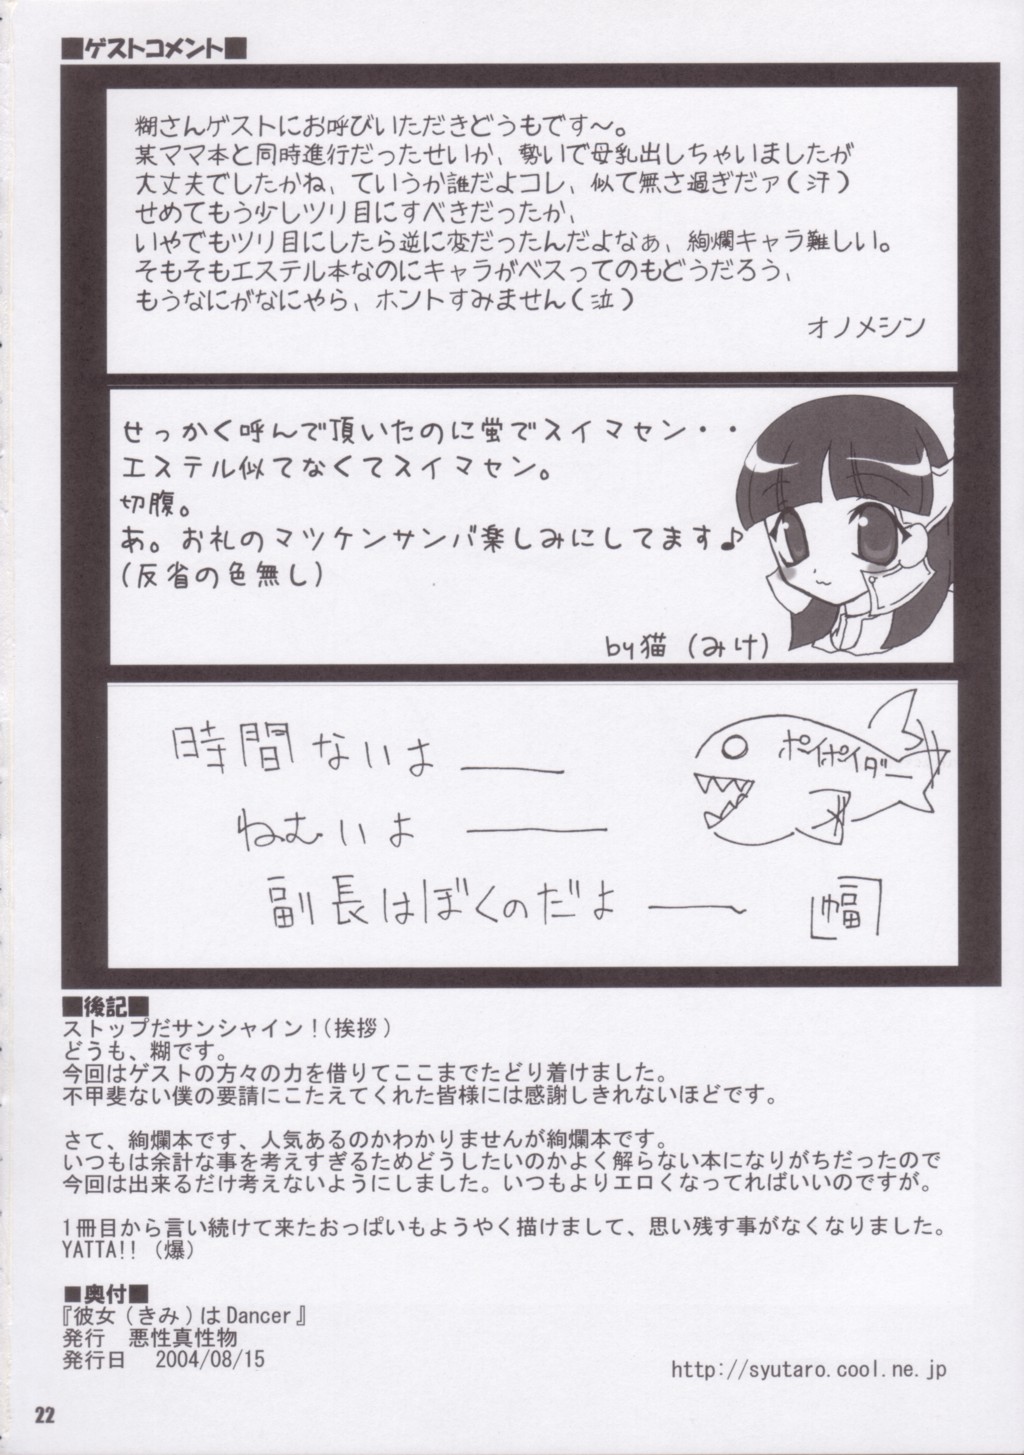 ■ゲストコメント■
糊さんゲストにお呼びいただきどうもです～。
某ママ本と同時進行だったせいか、勢いで母乳出しちゃいましたが
大丈夫でしたかね、ていうか誰だよコレ、似て無さ過ぎだァ(汗)
せめてもう少しツリ目にすべきだったか、
いやでもツリ目にしたら逆に変だったんだよなぁ、絢爛キャラ難しい。
そもそもエステル本なのにキャラがベスってのもどうだろう、
もうなにがなにやら、ホントすみません(泣)
オノメシン
せっかく呼んで頂いたのに蛍でスイマセン・・
エステル似てなくてスイマセン。
切腹。
あ。お礼のマツケンサンバ楽しみにしてます♪
(反省の色無し)
by猫 (みけ)
時間ないよ――
ねむいよ――
副長はぼくのだよ――
[幅]
ポイポイダー
■後記■
ストップだサンシャイン!(挨拶)
どうも、糊です。
今回はゲストの方々の力を借りてここまでたどり着けました。
不甲斐ない僕の要請にこたえてくれた皆様には感謝しきれないほどです。
さて、絢爛本です、人気あるのかわかりませんが絢爛本です。
いつもは余計な事を考えすぎるためどうしたいのかよく解らない本になりがちだったので
今回は出来るだけ考えないようにしました。いつもよりエロくなってればいいのですが。
1冊目から言い続けて来たおっぱいもようやく描けまして、思い残す事がなくなりました。
YATTA!! (爆)
■奥付■
『彼女(きみ)はDancer』
発行 悪性真性物
発行日 2004/08/15
http://syutaro.cool.ne.jp
22